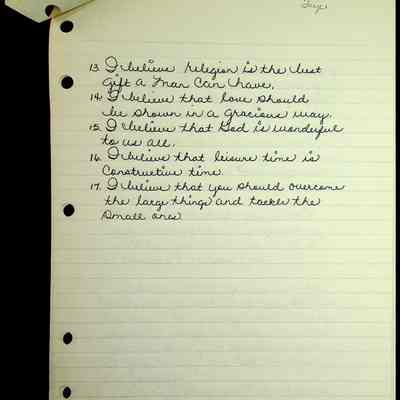 13. I believe religion is the best
gift a man can have.
14. I believe that love should
be shown in a gracious way.
15. I believe that God is wonderful
to us all.
16. I believe that leisure time is
constructive time.
17. I believe that you should overcome
the large things and tackle the
small ones